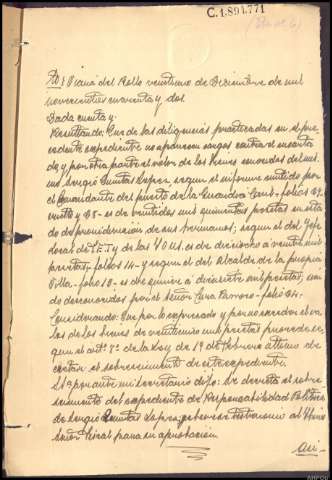 C.1.891.771
En Viana del Bollo veintiuno de Diciembre de mil
novecientos cuarenta y dos
Dada cuenta y
Resultando: Que de las diligencias practicadas en el pre-
cedente expediente no aparecen cargos contra el
de y por otra parte el valor de los bienes del
mo Sergio Cuntas según el informe emitido por
el Comandante del puesto de la Guardia Civil - folios
vuelto y 25 - es de veintidos mil quinientas pesetas
de de sus hermanos; según el del Jefe
local de F.E.T. y de las J.O.N.S. es de dieciocho a veinte mil
pesetas - folios 14 - y según el del Alcalde de la propia
Villa - folio 13 - es de quince a diecisiete mil pesetas;
de por el Señor Cura Párroco - folio 24.
Considerando: Que por lo expresado y por no exceder el va-
lor de los bienes de veinticinco mil pesetas procede se-
gún el artº 8º de la Ley de 19 de Febrero último de-
cretar el sobreseimiento de este expediente.
S.Sª por ante mi Secretario dijo: Se decreta el sobre-
seimiento del expediente de Responsabilidad Política
de Sergio Cuntas testimonio al Ilmo
Señor Fiscal para su aprobación.
Así-